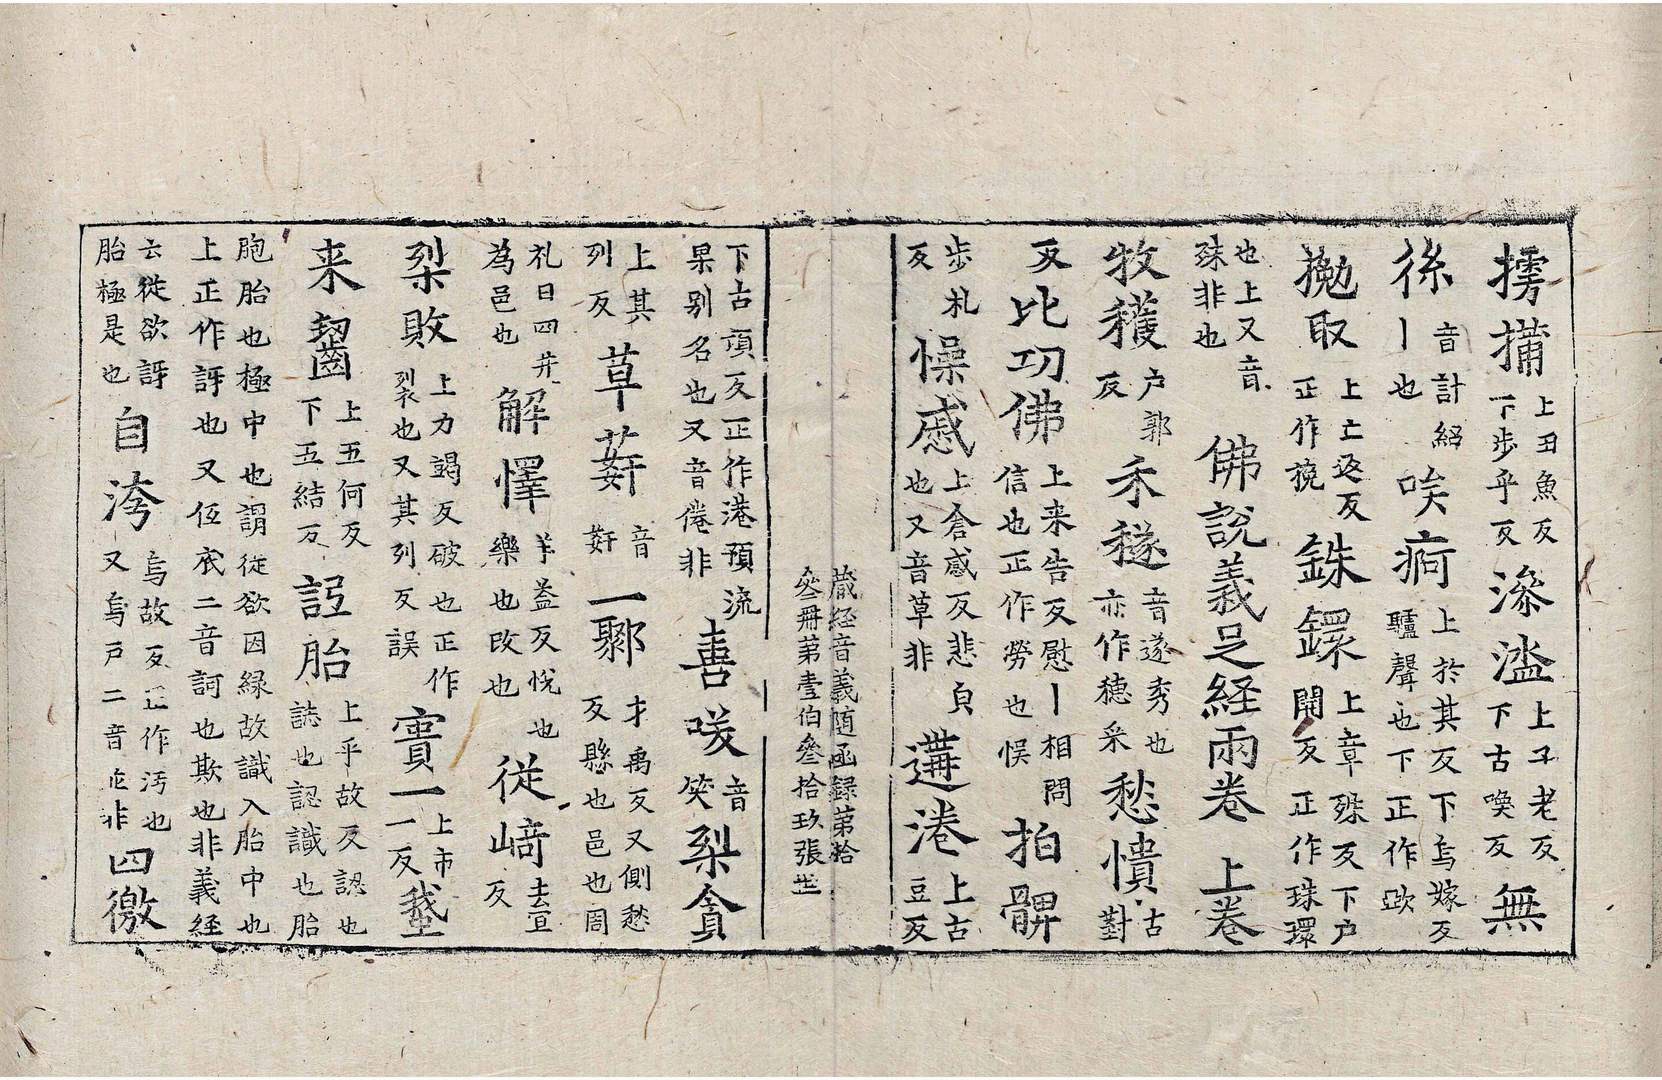 摴蒱上丑魚反下步乎反潦㵎上力老反下古喚反無
係丨也音計紹唉痾上於其反下烏嫁反驢聲也下正作𣣺
㧕取上亡返反正作挽銖鐶上章殊反下户開反正作珠環
也上又音殊非也佛說義足經兩卷上卷
牧穫户郭反禾穟音遂秀也亦作穗采愁憒古對
反比功佛上来告反慰丨相問信也正作勞也悮拍髀
步札反懆慼上倉感反悲皃也又音草非遘港上古豆反
藏経音義随函録第拾叁冊第壹伯叁拾玖張
下古項反正作港預流果别名也又音倦非善咲音笑梨貪
上其列反草䒵音䒵一鄹才禹反又側愁反縣也邑也周
礼日四井為邑也解懌羊益反悅也樂也改也從﨑去宜反
梨敗上力竭反破也正作裂也又其列反誤實一上市一反𧎬
来齧上五何反下五結反䛩胎上乎故反認也誌也認識也胎
胞胎也極中也謂從欲因縁故識入胎中也
上正作訝也又伍底二音訶也欺也非義經
云從欲訝胎極是也自洿烏故反正作汚也又烏戸二音非四徼